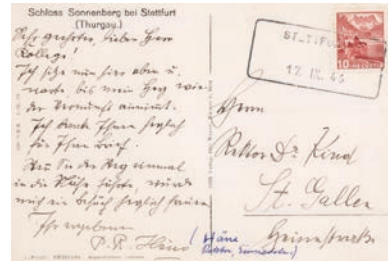 Schloss Sonnenberg bei Stettfurt
(Thurgau.)
Sehr geehrter, lieber Herr
Kollege!
Ich sitze nun hier oben u.
warte, bis mein Herz wie-
der Vernunft annimmt.
Ich danke Ihnen herzlich
für Ihren Brief.
Wenn Sie der Weg einmal
in die Nähe führte, würde
mich ein Besuch herzlich freuen
Ihr ergebener
P. R.
STETTFURT
12. IX. 46
10
HELVETIA
Herrn
Rektor Dr. Kind
St. Gallen
(Häne
Rektor, Einsiedeln)